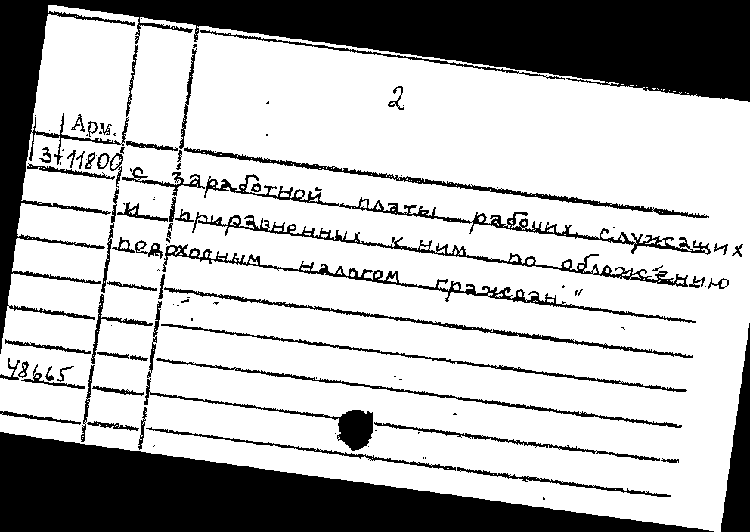 2
Арм.
3+11800
с заработной платы рабочих, служащих
и приравненных к ним по обложению
подоходным налогом граждан."
48665